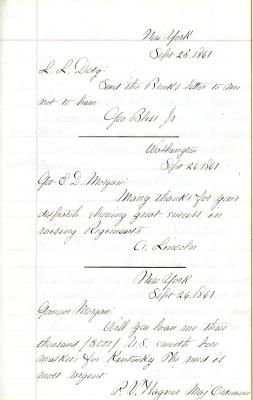 New York
Sept 25. 1861
L. L. Doty:
Send the Banks letter to me
not to him
Geo Bliss Jr
Washington
Sept 26 1861
Gov E. D. Morgan:
Many thanks for your
dispatch showing great success in
raising Regiments
A. Lincoln
New York
Sept 26, 1861
Governor Morgan:
Will you loan me three
thousand (3000) U.S. smooth bore
muskets for Kentucky The need is
most urgent
P. V. Hagner Maj Ordnance